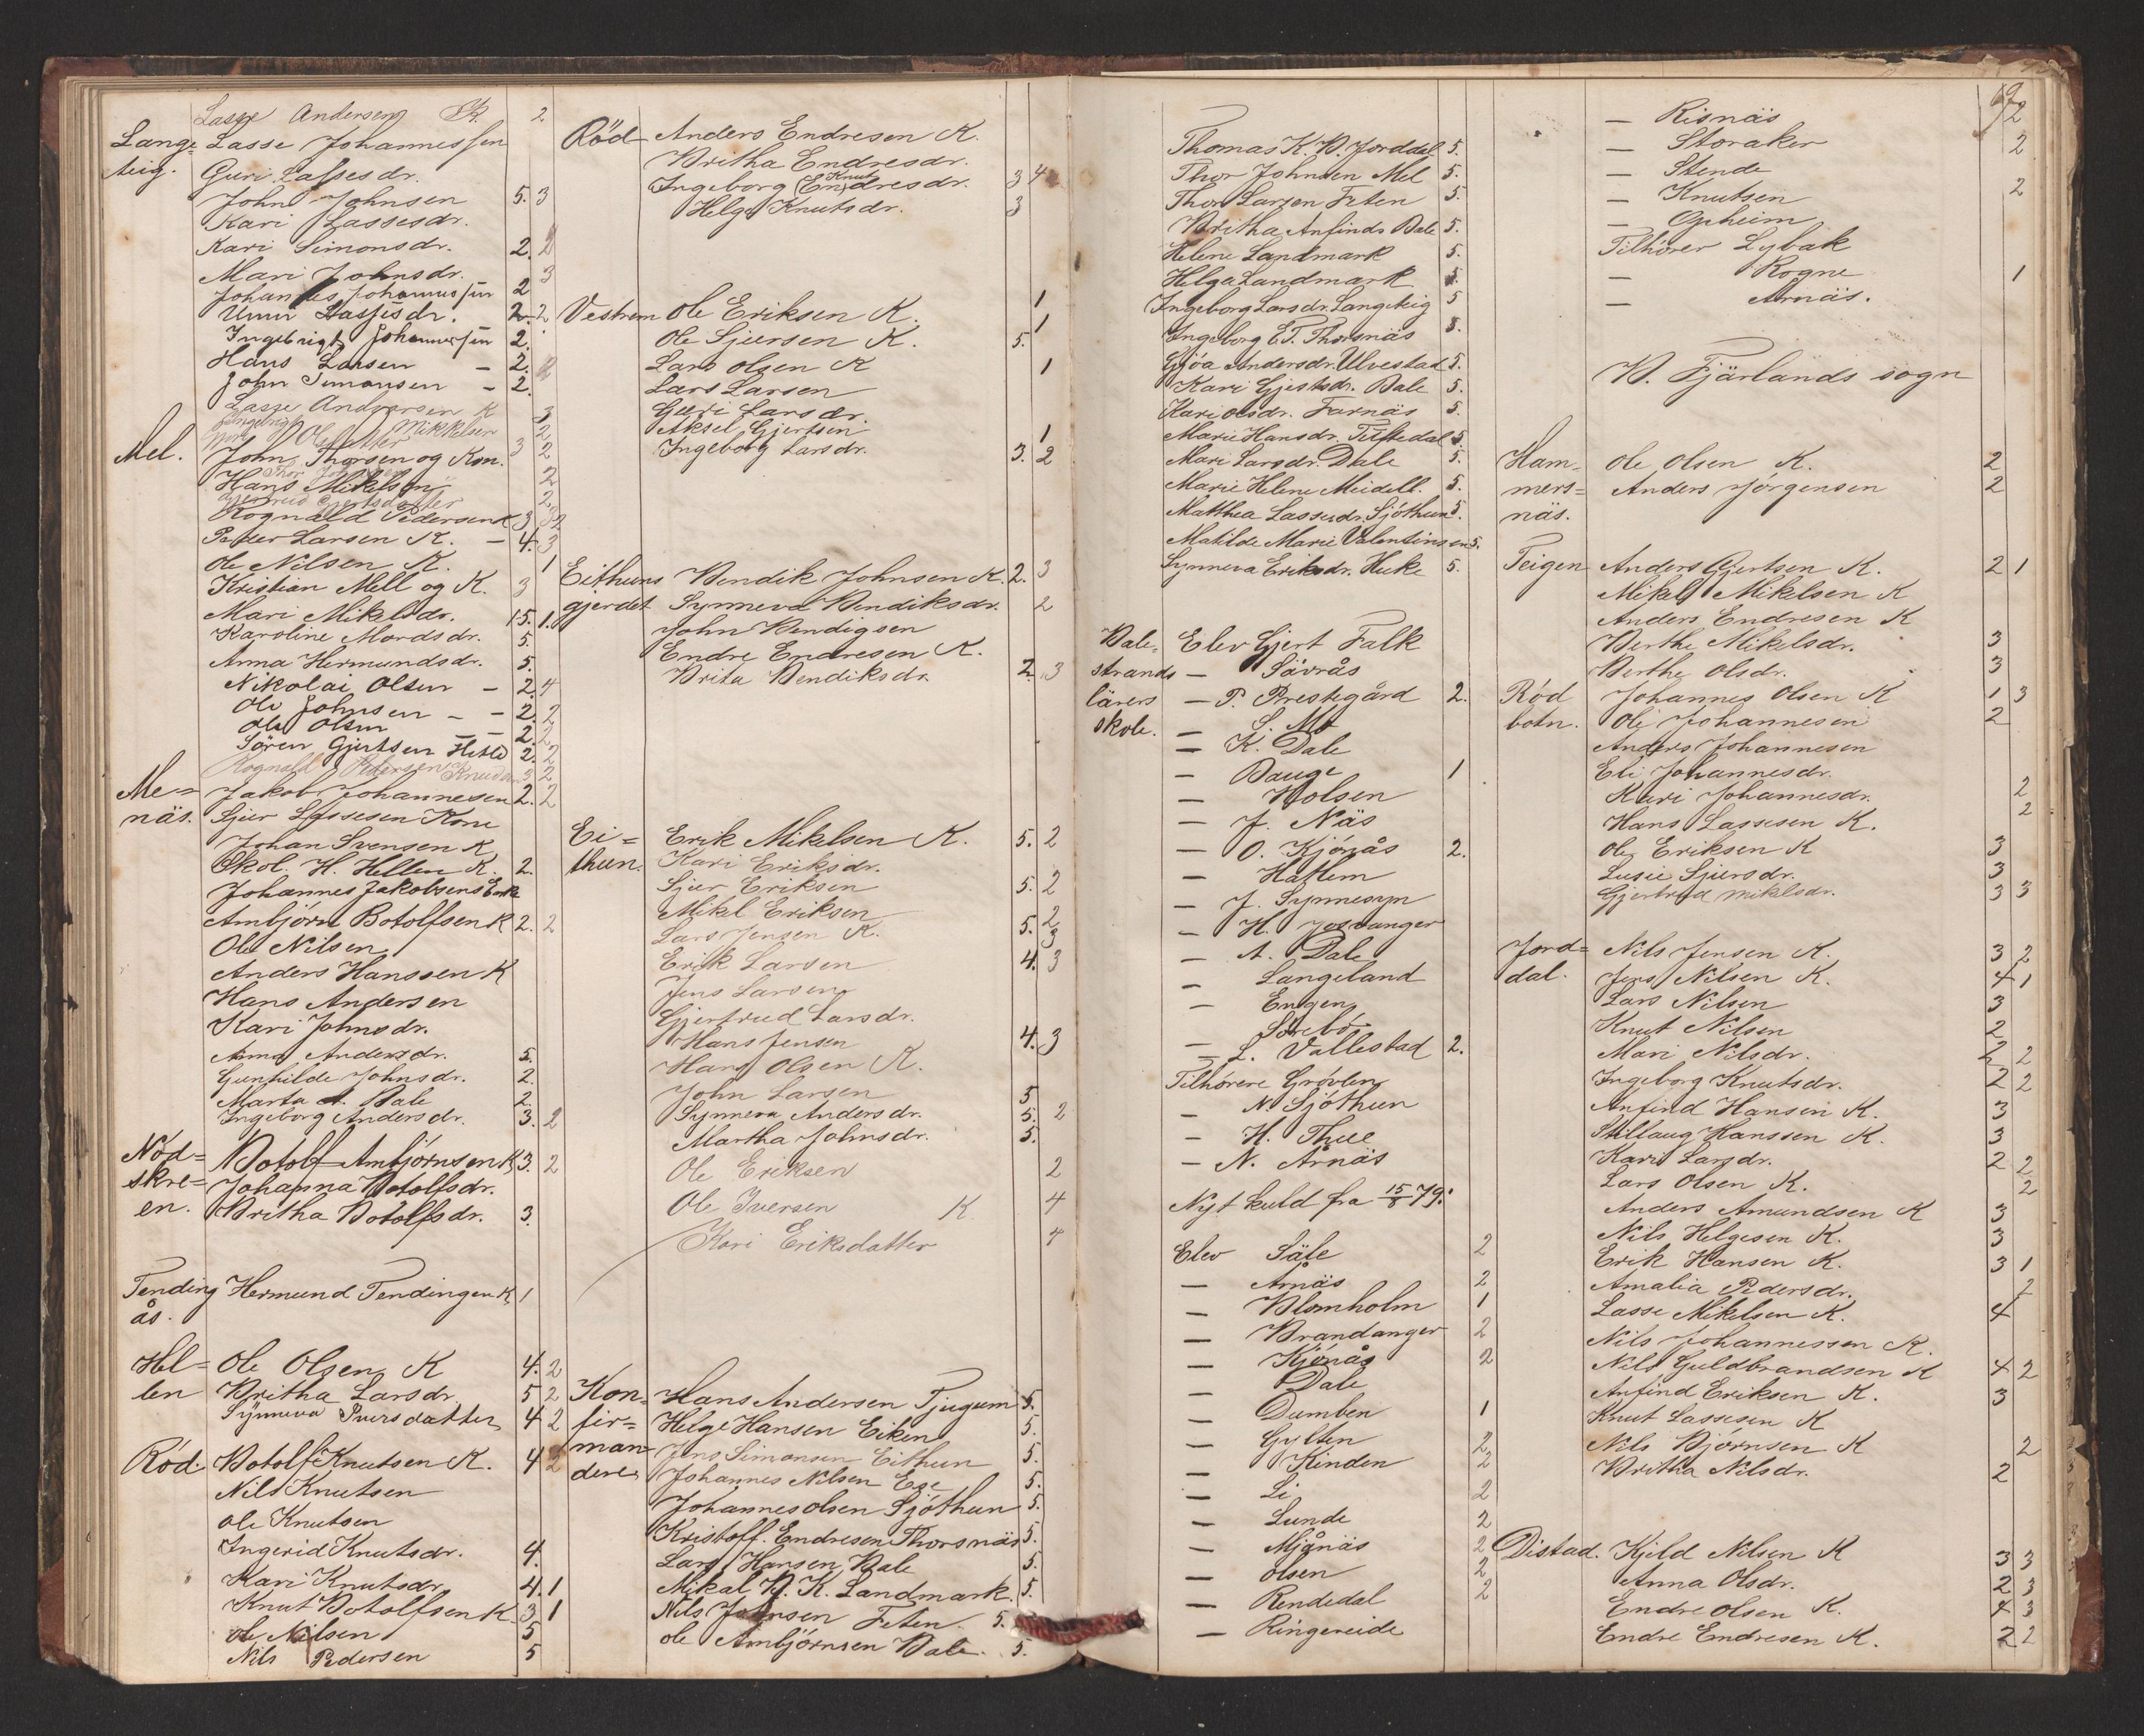 Lasse Andersen K. 2
Lange= Lasse Johannessen
teig. Guri Lassesdr.
John Johnsen 5. 3
Kari Lassesdr.
Kari Simonsdr. 2. 2
Mari Johnsdr. 3
Johannes Johannessen 2
Unni Lassesdr. 2. 2
Ingebrigt Johannessen 2.
Hans Larsen – 2. 2
John Simonsen – 2.
Lasse Andersen K 3
Mikkelsen 2
Mel. John Thorsen og Kon. 3 2
Hans Mikelsen 2
Gjertrud Gjertsdatter 2
Rognald Pedersen K 3 2
Peder Larsen K. – 4. 3
Ole Nilsen K. 1
Kristian Mell og K. 3
Mari Mikelsdr. 15. 1.
Karoline Mordsdr. 5.
Anna Hermundsdr. 5.
Nikolai Olsen – 2. 4
Ole Johnsen – – 2. 2
Ole Olsen – – 2. 2
Sören Gjertsen Hetle 2. 2
Rognald Pedersen 3 2
Me= Jakob Johannesen 2. 2
näs. Sjur Lassesen Kone
Johan Svensen K
Skol. H. Hellen K. 2.
Johannes Jakobsens Enke
Ambjörn Botolfsen K 2. 2
Ole Nilsen
Anders Hanssen K
Hans Andersen
Kari Johnsdr.
Anna Andersdr. 5.
Gunhilde Johnsdr. 2.
Marta A. Dale 2.
Ingeborg Andersdr. 3. 2
Nöd= Botolf Ambjörnsen K 3. 2
skre= Johanna Botolfsdr.
en. Britha Botolfsdr. 3.
Tending Hermund Tendingen K. 1
ås.
Hel= Ole Olsen K 4. 2
len Britha Larsdr. 5 2
Synneva Iversdatter 4 2
Röd. Botolf Knutsen K. 4 2
Nils Knutsen
Ole Knutsen
Ingerid Knutsdr. 4.
Kari Knutsdr. 4. 1
Knut Botolfsen K. 3 1
Ole Nilsen 5
Nils Pedersen 5
Röd Anders Endresen K.
Britha Endresdr.
Knut
Ingeborg (En)dresdr. 3 4
Helge Knutsdr. 3
Vestrem Ole Eriksen K. 1
Ole Sjursen K. 5. 1
Lars Olsen K 1
Lars Larsen
Guri Larsdr.
Aksel Gjertsen 1
Ingeborg Larsdr. 3. 2
Eithuns Bendik Johnsen K. 2. 3
gjerdet Synneva Bendiksdr. 2
John Bendigsen
Endre Endresen K.
Brita Bendiksdr. 2. 3
Ei= Erik Mikelsen K. 5. 2
thun. Kari Eriksdr.
Sjur Eriksen 5. 2
Mikel Eriksen 2
Lars Jensen K. 5. 3
Erik Larsen 4. 3
Jens Larsen
Gjertrud Larsdr.
Hans Jensen 4. 3
Hans Olsen K.
John Larsen 5
Synneva Andersdr. 5. 2
Martha Johnsdr. 5.
Ole Eriksen 2
Ole Iversen K 4
Kari Eriksdatter 4
Kon= Hans Andersen Tjugum 5.
fir= Helge Hansen Eiken 5.
man= Jens Simonsen Eithun 5.
dere Johannes Nilsen Ese 5.
Johannes Olsen Sjöthun 5.
Kristoff. Endresen Thorsnäs 5.
Lars Hansen Dale 5.
Mikal B. K. Landmark. 5.
Nils Johnsen Feten. 5.
Ole Ambjörnsen Dale. 5.
Thomas K. B. Jorddal 5.
Thor Johnsen Mel 5.
Thor Larsen Feten 5.
Britha Anfinds Dale 5.
Helene Landmark 5.
Helga Landmark 5.
Ingeborg Larsdr. Langeteig 5
Ingeborg E. T. Thorsnäs 5.
Gjöa Andersdr. Ulvestad 5.
Kari Gjestsdr. Dale 5.
Kari Olsdr. Farnäs 5.
Marie Hansdr. Tuftedal 5.
Mari Larsdr. Dale 5.
Marie Helene Meidell. 5.
Matthea Lassesdr. Sjöthun 5.
Matilde Marie Valentinsen 5.
Synneva Eriksdr. Huke 5.
Bale= Elev Gjert Falk
strands – Sövrås
lärers – P. Prestegård 2.
skole. – S. Mo
– K. Dale
– Bauge 1
– Holsen
– J. Näs
– O. Kjönås 2.
– Hatlem
– J. Synnesyn
– H. Josvanger
– A. Dale
– Langeland
– Engen
– Sörebö
– L. Vallestad 2.
Tilhörere Grövlen
– N. Sjöthun
– H. Thue
– N. Årnäs
Nyt kuld fra 15/8 79:
Elev Säle 2
– Arnäs 2
– Blomholm 1
– Brandanger 2
– Kjönås 2
– Dale
– Dumben 1
– Gylten 2
– Kinden 2
– Li 2
– Lunde 2
– Mjånäs 2
– Olsen 2
– Rendedal 2
– Ringereide
– Risnäs 2
– Storaker 2
– Stende
– Knutsen 2
– Opheim
Tilhörer Lybak
– Rogne 1
– Arnäs.
B. Fjärlands sogn
Ham= Ole Olsen K. 2
mers= Anders Jörgensen 2
näs.
Teigen Anders Gjertsen K. 2 1
Mikel Mikelsen K
Anders Endresen K
Berthe Mikelsdr. 3
Berthe Olsdr. 3
Röd Johannes Olsen K 1 3
botn. Ole Johannesen 2
Anders Johannesen
Eli Johannesdr.
Kari Johannesdr. 2
Hans Lassesen K. 2
Ole Eriksen K 3
Lusie Sjursdr. 3
Gjertrud Mikelsdr. 3 3
Jord= Nils Jensen K. 3 2
dal. Jens Nilsen K. 4 1
Lars Nilsen 3
Knut Nilsen 2
Mari Nilsdr. 2 2
Ingeborg Knutsdr. 2 2
Anfind Hansen K. 3
Stillaug Hanssen K. 3
Kari Larsdr. 2 2
Lars Olsen K. 2
Anders Amundsen K 3
Nils Helgesen K. 3
Erik Hansen K. 3 1
Amalia Pedersdr. 2
Lasse Mikelsen K. 4
Nils Johannessen K.
Nils Guldbrandsen K 4 2
Anfind Eriksen K. 3
Knut Lassesen K
Nils Björnsen K 2
Britha Nilsdr. 2
Distad. Kjeld Nilsen K 3 3
Anna Olsdr. 2 3
Endre Olsen K. 4 3
Endre Endresen K. 2 2